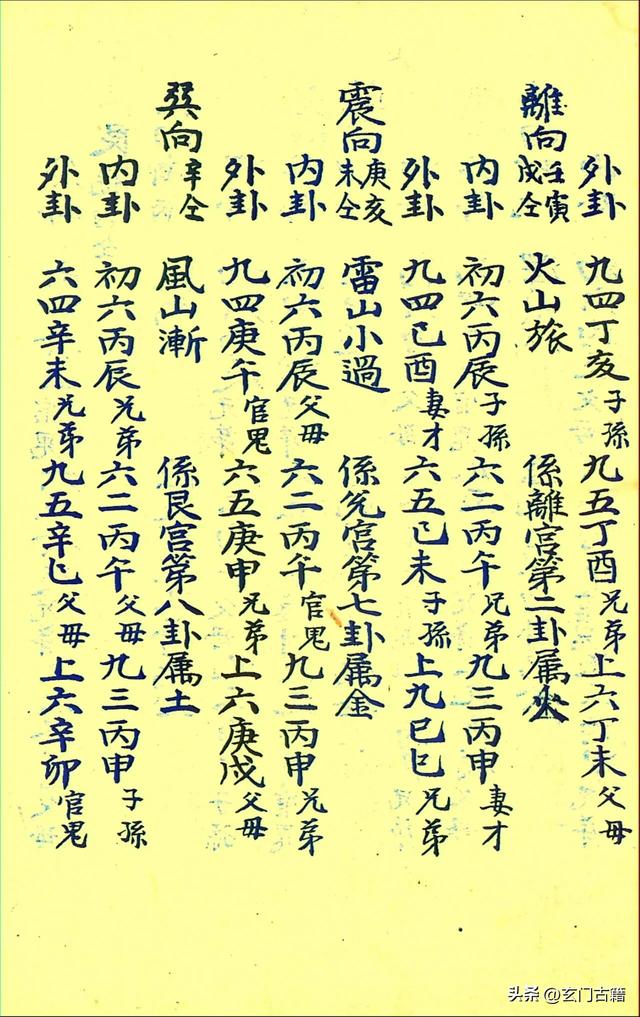 外卦 九四丁亥子孫 九五丁酉兄弟 上六丁未父母
離向壬寅戊仝 火山旅 係離宫第二卦属火
内卦 初六丙辰子孫 六二丙午兄弟 九三丙申妻才
外卦 九四己酉妻才 六五己未子孫 上九巳巳兄弟
震向庚亥未仝 雷山小過 係兊宫第七卦属金
内卦 初六丙辰父母 六二丙午官鬼 九三丙申兄弟
外卦 九四庚午官鬼 六五庚申兄弟 上六庚戍父母
巽向辛仝 風山漸 係艮宫第八卦属土
内卦 初六丙辰兄弟 六二丙午父母 九三丙申子孫
外卦 六四辛未兄弟 九五辛巳父母 上六辛卯官鬼
头条 @玄门古籍